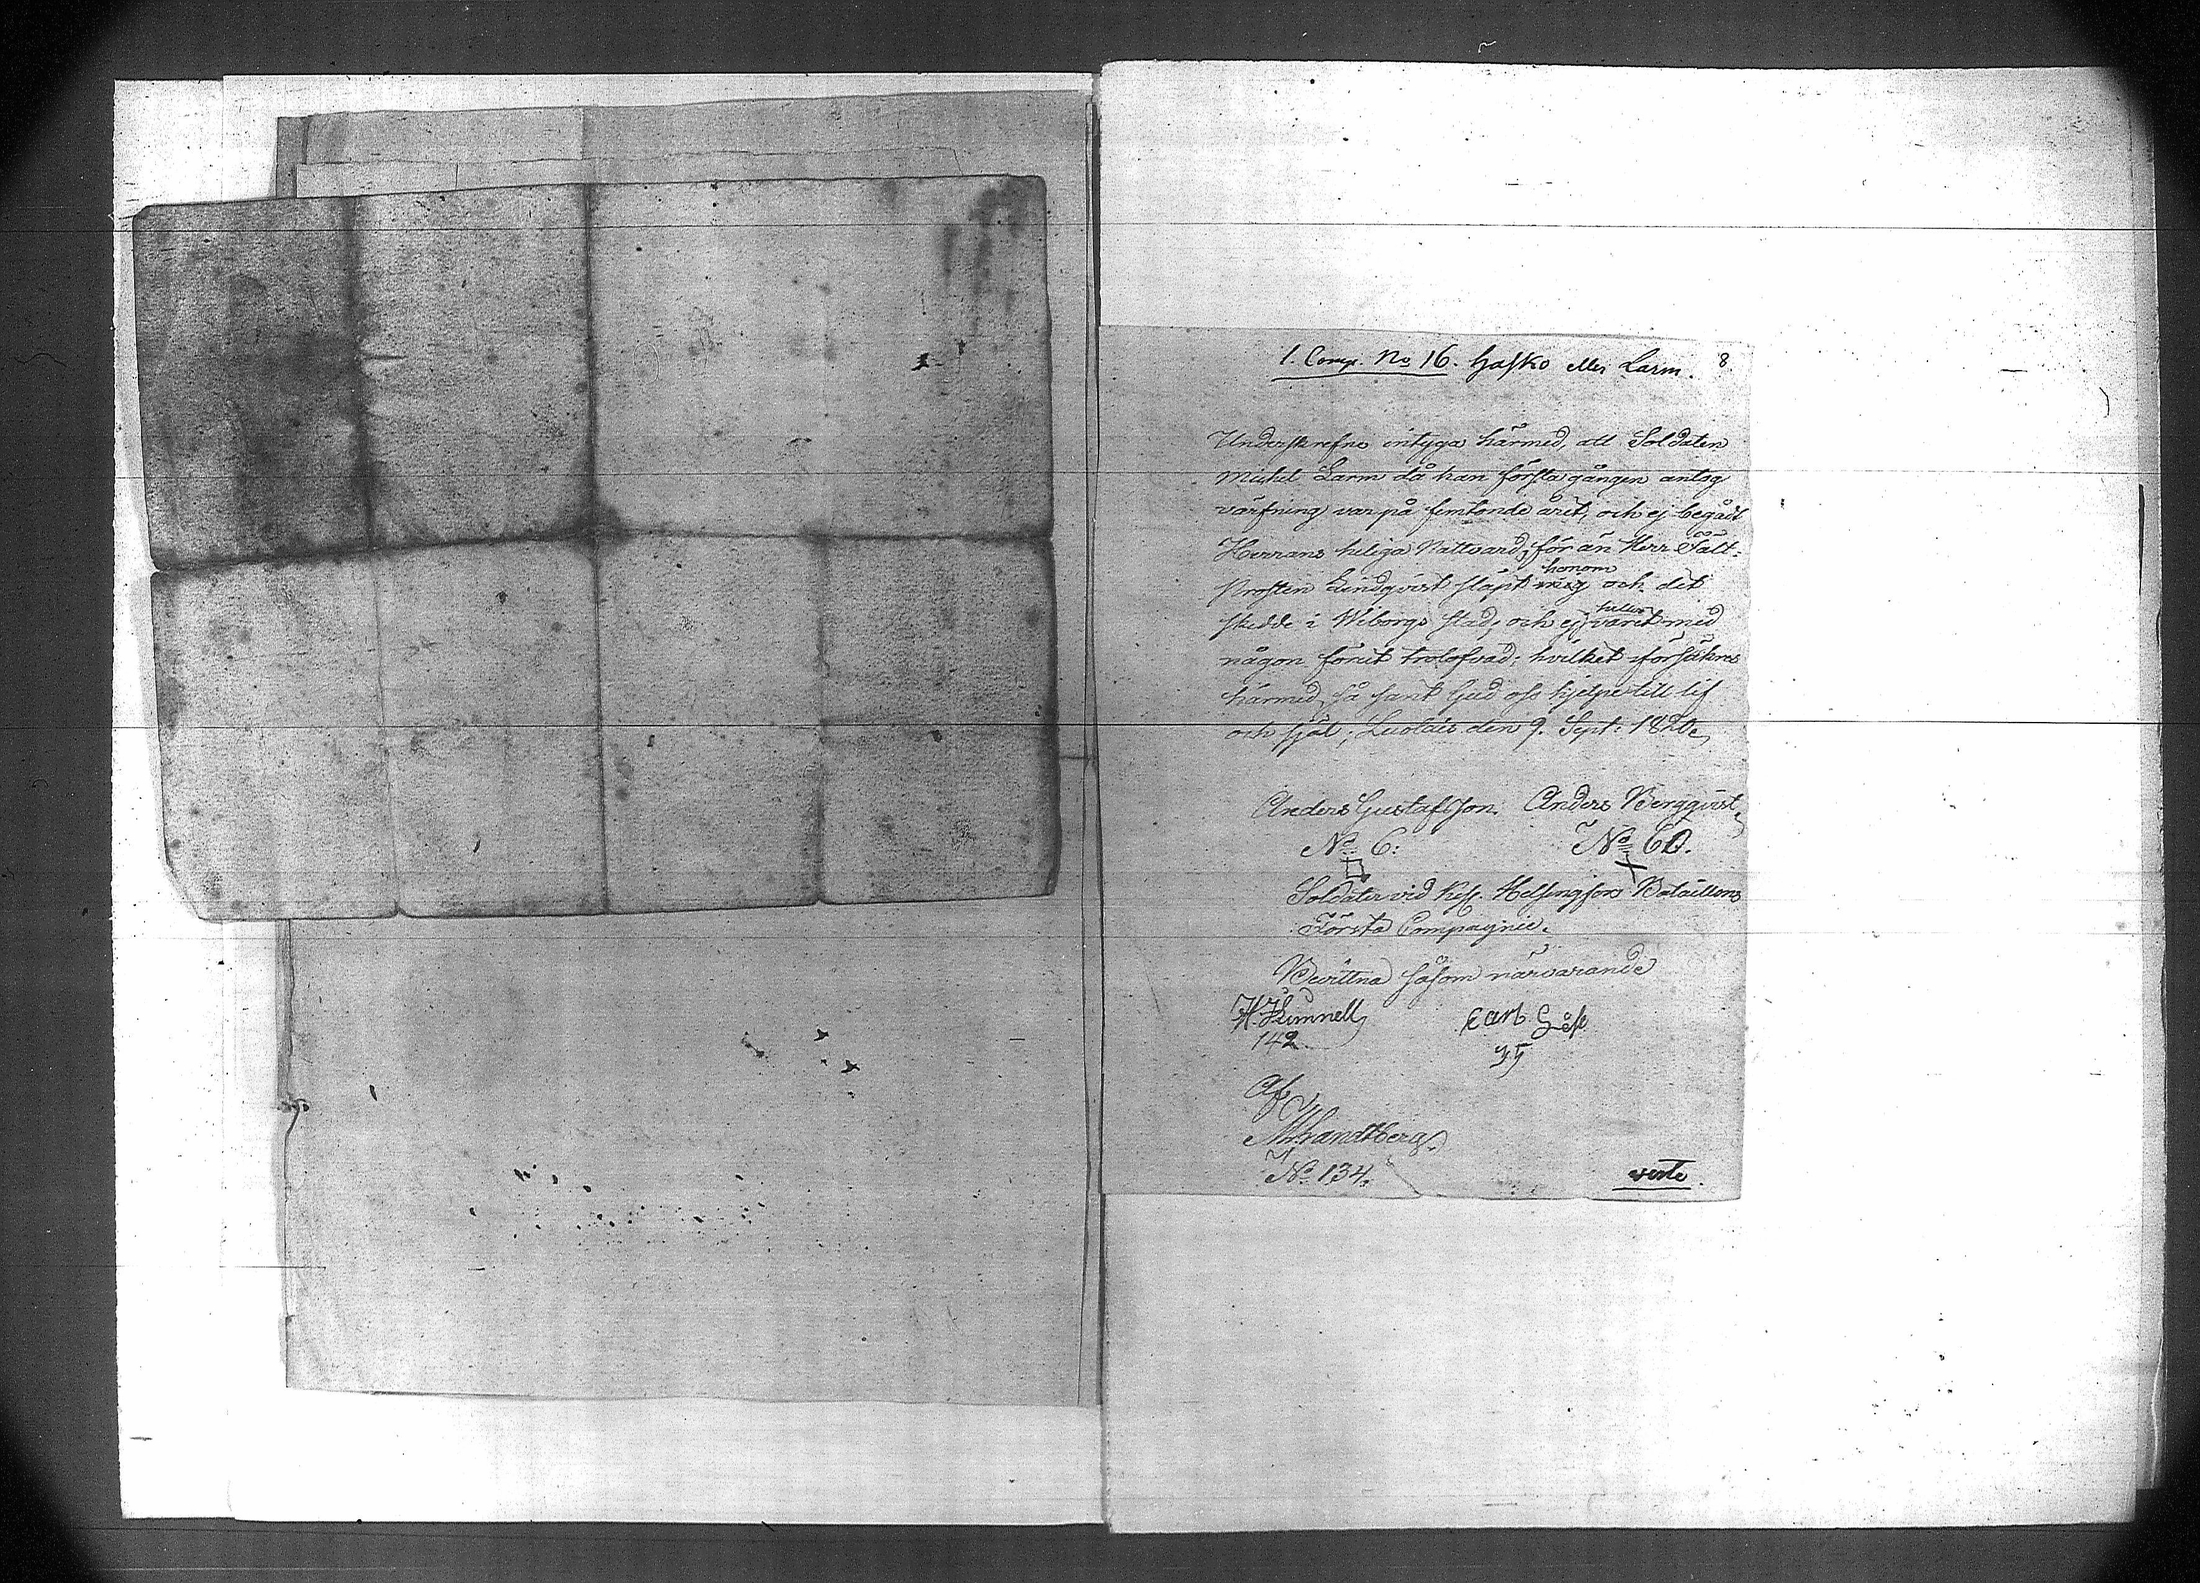 1. Comp. No 16. Hasko eller Larm. 8
Underskrefne intyga härmed, att Soldaten
Michel Larm då han första gången antog
värfning var på femtonde året, och ej begådt
Herrans heliga Nattvard, för än Herr Fält-
honom
Prosten Lindqvist släpt mig och det
heller
skedde i Wiborgs stad, och ej varit med
någon förut trolofvad: hvilket försäkras
härmed, så sant Gud oss hjelpe till lif
och själ; den 9. Sept: 1820,
Anders Gustafsson. Anders Bergqvist,
No 6: No 60.
Soldater vid Helsingfors Bataillons
Första Compagnie.
Bevittna såsom närvarande
142
Carl
Af
No 134.
verte.